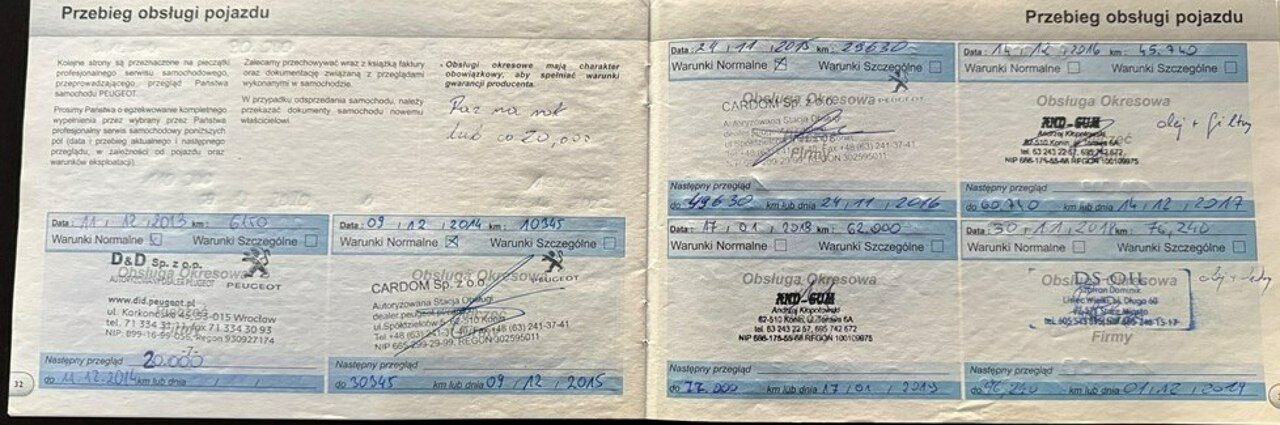 Przebieg obsługi pojazdu
Kolejne strony są przeznaczone na pieczątki
profesjonalnego serwisu samochodowego,
przeprowadzającego przegląd Państwa
samochodu PEUGEOT.
Prosimy Państwa o egzekwowanie kompletnego
wypełnienia przez wybrany przez Państwa
profesjonalny serwis samochodowy poniższych
pól (data i przebieg aktualnego i następnego
przeglądu, w zależności od pojazdu oraz
warunków eksploatacji).
Zalecamy przechowywać wraz z książką faktury
oraz dokumentację związaną z przeglądami
wykonanymi w samochodzie.
W przypadku odsprzedania samochodu, należy
przekazać dokumenty samochodu nowemu
właścicielowi.
• Obsługi okresowe mają charakter
obowiązkowy, aby spełniać warunki
gwarancji producenta.
Raz na rok
lub co 20,000
Data: 11 / 12 / 2013 km: 6150
Warunki Normalne Warunki Szczególne
Obsługa Okresowa
D&D Sp. z o.o.
AUTORYZOWANY DEALER PEUGEOT
PEUGEOT
www.did.peugeot.pl
ul. Karkonoska 45, 53-015 Wrocław
tel. 71 334 31 fax 71 334 30 93
NIP: 899-16-99-056, Regon 930927174
Następny przegląd 20.000
do 11.12.2014 km lub dnia / /
32
Data: 09 / 12 / 2014 km: 10345
Warunki Normalne Warunki Szczególne
Obsługa Okresowa
CARDOM Sp. z o.o.
PEUGEOT
Autoryzowana Stacja Obsługi
dealer peugeot
ul.Spółdzielców 62-510 Konin
Tel +48 (63) fax +48 (63) 241-37-41
NIP 665-299-29-99, REGON 302595011
Następny przegląd
do 30345 km lub dnia 09 / 12 / 2015
Przebieg obsługi pojazdu
Data: 24 / 11 / 2015 km: 29630
Warunki Normalne Warunki Szczególne
Obsługa Okresowa
CARDOM Sp. z o.o.
PEUGEOT
Autoryzowana Stacja Obsługi
dealer
Fax +48 (63) 241-37-41
299-29-99, REGON 302595011
Następny przegląd
do 49630 km lub dnia 24 / 11 / 2016
Data: 14 / 12 / 2016 km: 45.740
Warunki Normalne Warunki Szczególne
Obsługa Okresowa
AND-GUM
Andrzej Kłopotowski
62-510 Konin, ul. Torowa 6A
tel. 63 243 22 67, 695 742 672
NIP 666-175-55-88 REGON 100109975
olej + filtry
Następny przegląd
do 60.740 km lub dnia 14 / 12 / 2017
Data: 17 / 01 / 2018 km: 62.000
Warunki Normalne Warunki Szczególne
Obsługa Okresowa
AND-GUM
Andrzej Kłopotowski
62-510 Konin, ul. Torowa 6A
tel. 63 243 22 67, 695 742 672
NIP 666-175-55-88 REGON 100109975
Następny przegląd
do 77.000 km lub dnia 17 / 01 / 2019
Data: 30 / 11 / 2018 km: 76,240
Warunki Normalne Warunki Szczególne
Obsługa Okresowa
DS-OIL
Dominik
Firmy
Następny przegląd
do 96,240 km lub dnia 01 / 12 / 2019